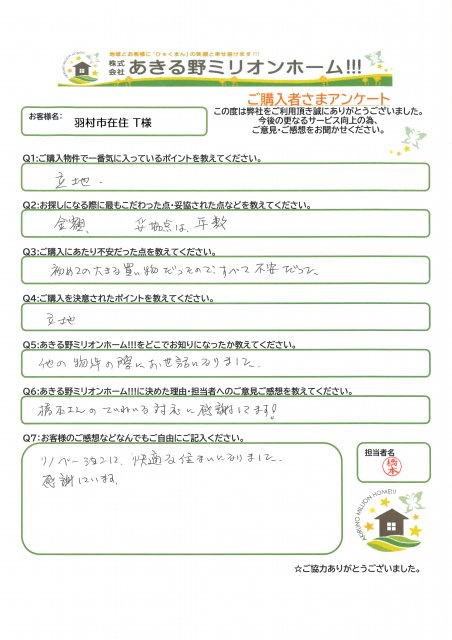 地域とお客様に「ひゃくまん」の笑顔と幸せ届けます!!!
株式会社 あきる野ミリオンホーム!!!
ご購入者さまアンケート
お客様名:
羽村市在住 T様
この度は弊社をご利用頂き誠にありがとうございました。
今後の更なるサービス向上の為、
ご意見・ご感想をお聞かせください。
Q1:ご購入物件で一番気に入っているポイントを教えてください。
立地.
Q2:お探しになる際に最もこだわった点・妥協された点などを教えてください。
金額、 妥協点は、年数
Q3:ご購入にあたり不安だった点を教えてください。
初めての大きな買い物だったので、すべて不安だった。
Q4:ご購入を決意されたポイントを教えてください。
立地
Q5:あきる野ミリオンホーム!!!をどこでお知りになったか教えてください。
他の物件の際にお世話になりました.
Q6:あきる野ミリオンホーム!!!に決めた理由・担当者へのご意見ご感想を教えてください。
橋本さんのていねいな対応に感謝してます!
Q7:お客様のご感想などなんでもご自由にご記入ください。
快適な住まいになりました.
担当者名
橋本
AKIRUNO MILLION HOME!!!
☆ご協力ありがとうございました。